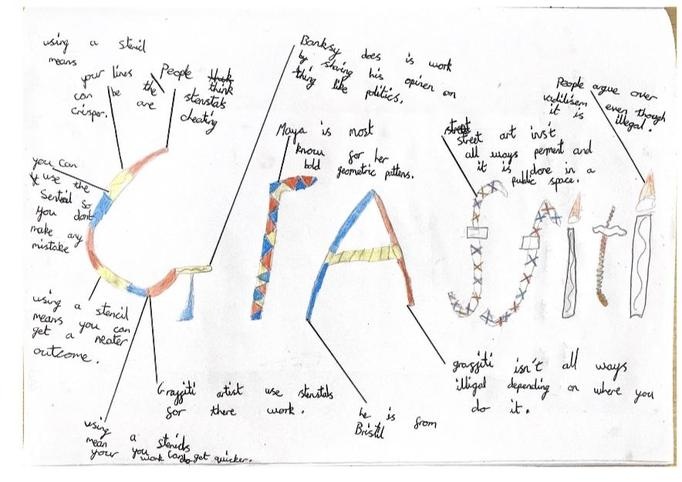 using a stencil
means
your lines
can be the
crisper.
People think
think
are stenstals
cheating
Banksy does is work
by staring his opinen on
thing like politics.
People argue over
vadilisem even though
it is illegal.
Maya is most
know for her
bold geometric pattens.
street
street art inst
all ways perment and
it is done in a
public space.
you can
use the
Senteal so
you dont
make any
mistake
Graffiti
using a stencil
means you can
get a neater
outcome.
Graffiti artist use stenstals
for there work.
he is from
Bristil
graffiti isn't all ways
illigal depending on where you
do it.
using a stenids
mean you can get
your work done quicker.